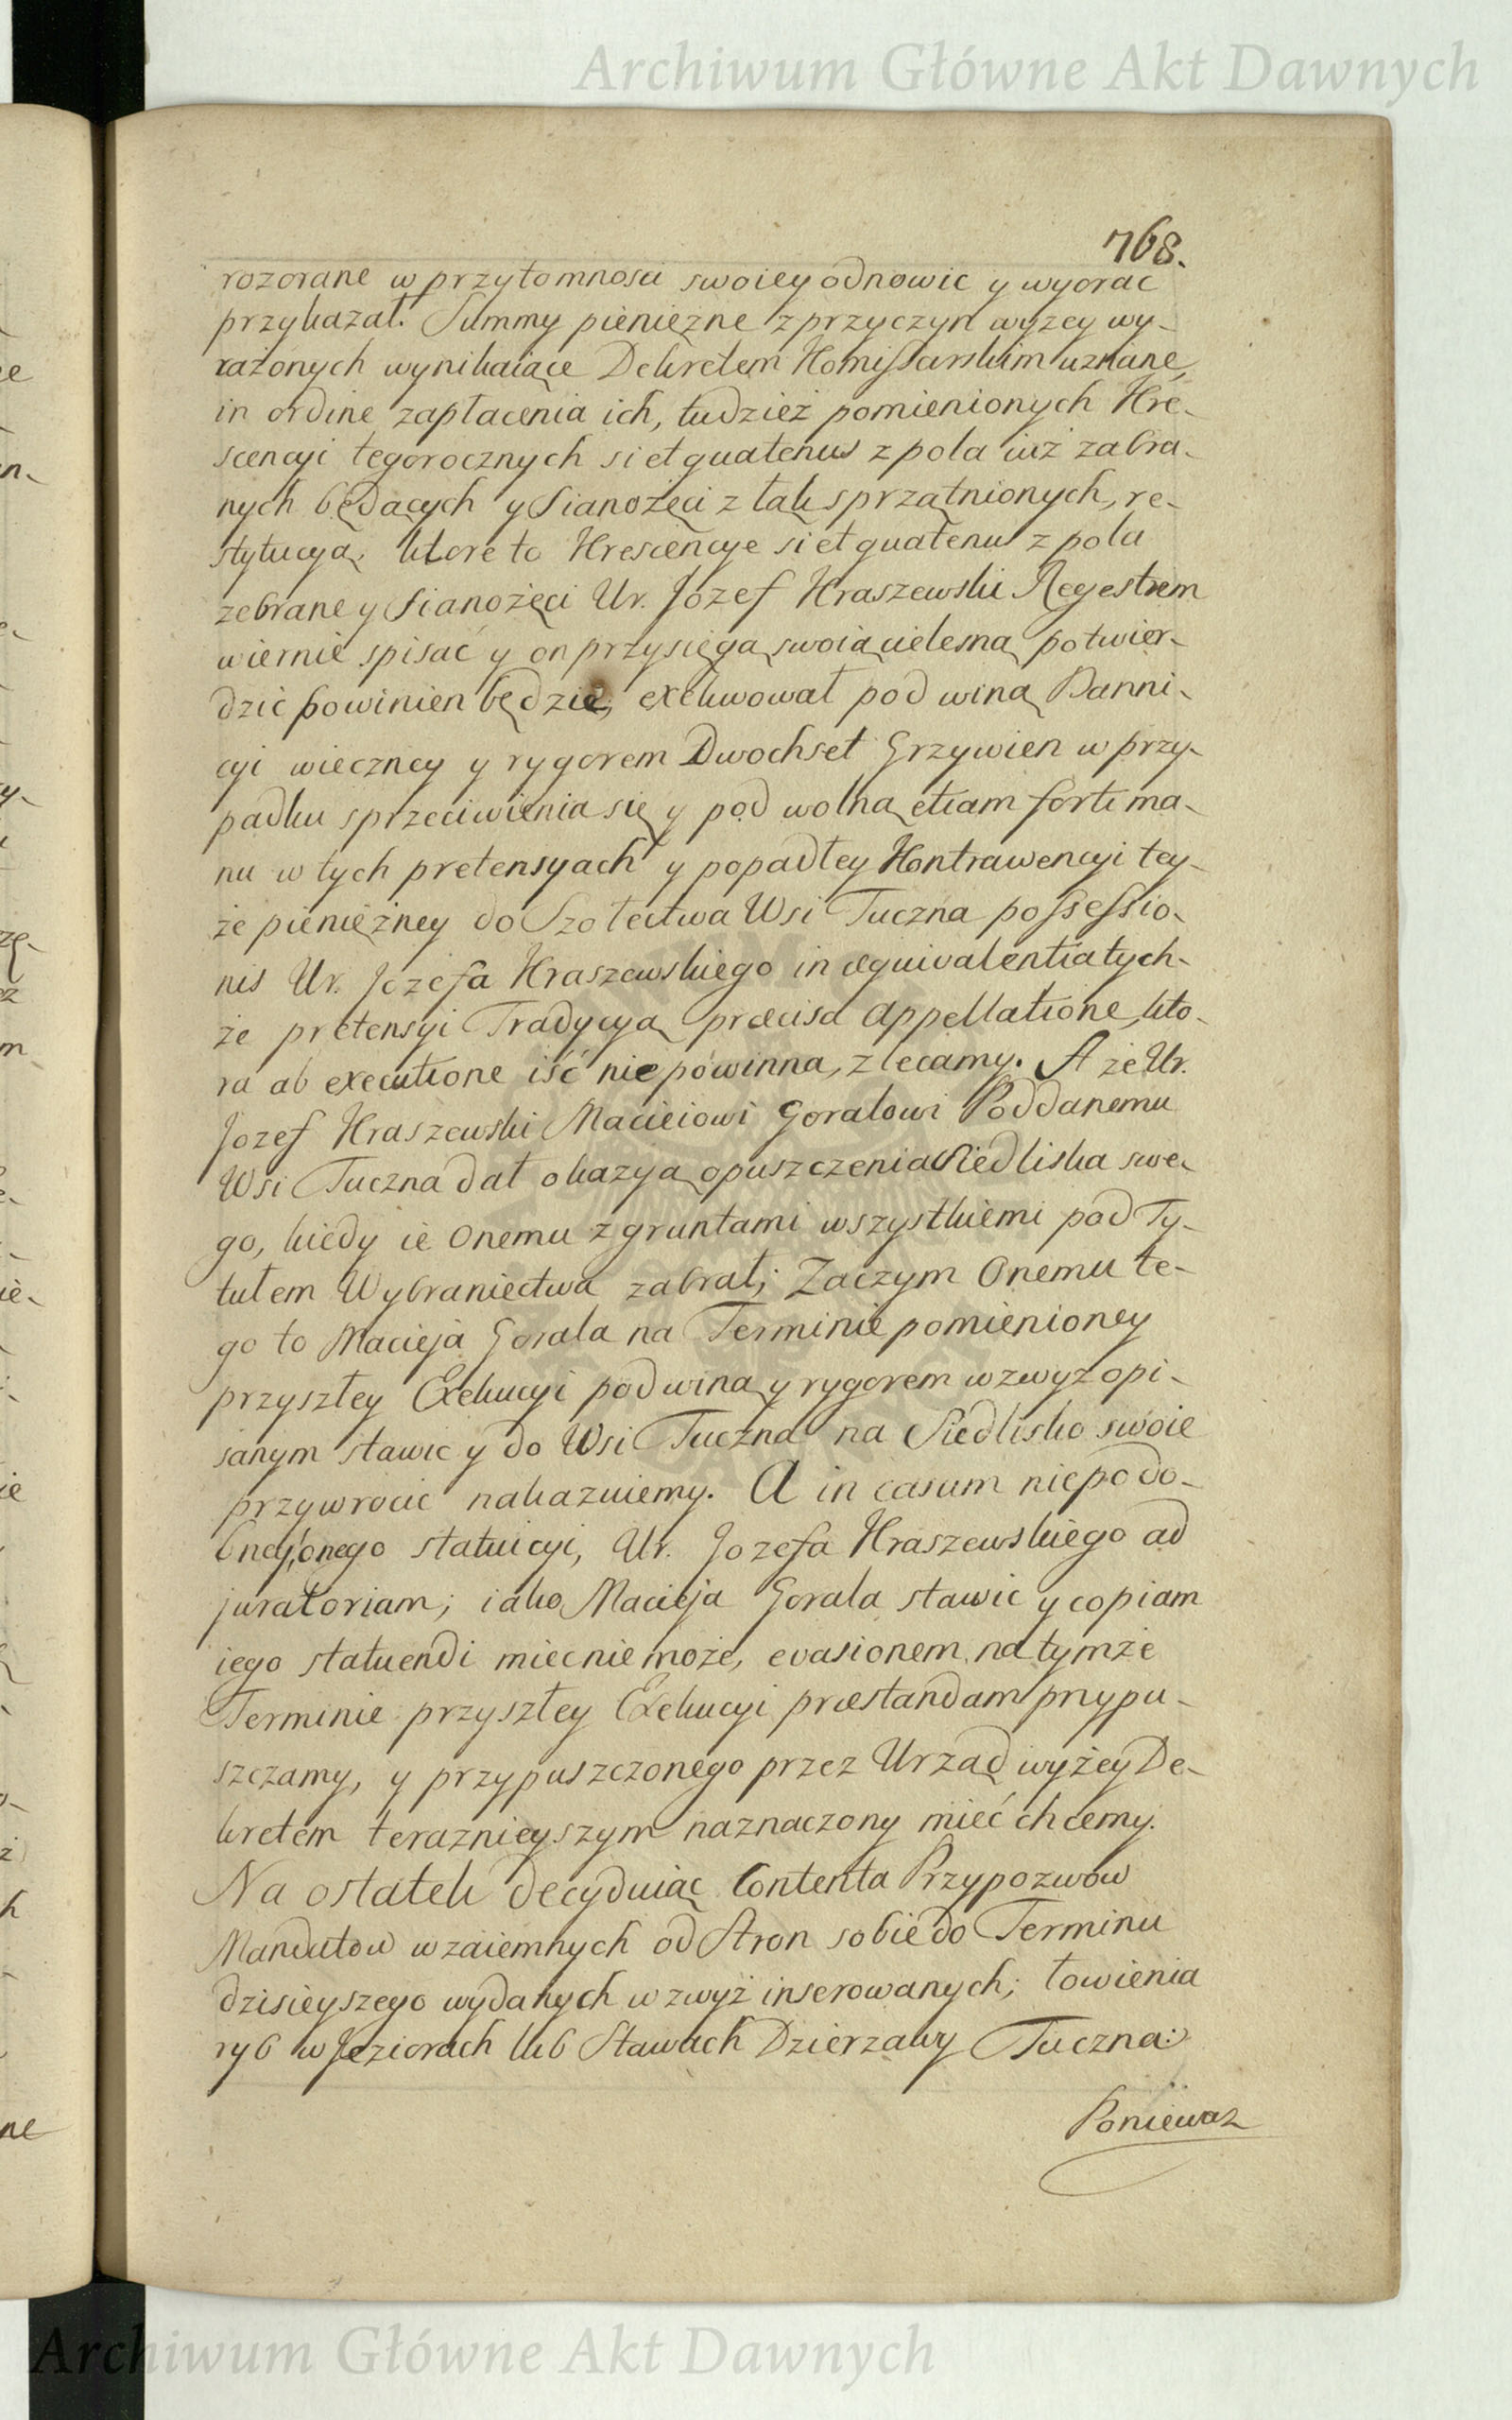 Archiwum Główne Akt Dawnych
768.
rozorane w przytomnosci swoiey odnowic y wyorac
przykazał. Summy pieniężne z przyczyn wyzey wy-
rażonych wynikaiące Dekretem Komissarskim uznane,
in ordine zapłacenia ich, tudzież pomienionych Kre-
scencyi tegorocznych si et quatenus z pola iuż zabra-
nych będących y Sianożęci z łąk sprzątnionych, re-
stytucyą, ktore to Krescencye si et quatenus z pola
zebrane y Sianożęci Ur. Jozef Kraszewski Regestrem
wiernie spisać y on przysięgą swoią cielesną potwier-
dzić powinien będzie, exekwował pod winą Banni-
cyi wieczney y rygorem Dwochset Grzywien w przy-
padku sprzeciwienia się y pod wolną etiam forti ma-
nu w tych pretensyach y popadłey Kontrawencyi tey-
że pieniężney do Szołectwa Wsi Tuczna possessio-
nis Ur. Jozefa Kraszewskiego in æquivalentia tych-
że pretensyi Tradycyą præcisa Appellatione, kto-
ra ab executione iść nie powinna, zlecamy. A że Ur.
Jozef Kraszewski Macieiowi Goralowi Poddanemu
Wsi Tuczna dał okazyą opuszczenia Siedliska swe-
go, kiedy ie onemu z gruntami wszystkiemi pod Ty-
tułem Wybraniectwa zabrał; Zaczym Onemu te-
go to Macieja Gorala na Terminie pomienioney
przyszłey Exekucyi pod winą y rygorem wzwyż opi-
sanym stawic y do Wsi Tuczna na Siedlisko swoie
przywrocic nakazuiemy. A in casum niepodo-
bney onego statuicyi, Ur. Jozefa Kraszewskiego ad
juratoriam; iako Macieja Gorala stawic y copiam
iego statuendi miec nie może, evasionem na tymże
Terminie przyszłey Exekucyi præstandam przypu-
szczamy, y przypuszczonego przez Urząd wyżey De-
kretem teraznieyszym naznaczony mieć chcemy.
Na ostatek decyduiąc Contenta Przypozwow
Mandatow wzaiemnych od Stron sobie do Terminu
dzisieyszego wydanych wzwyż inserowanych; łowienia
ryb w Jeziorach lub Stawach Dzierzawy Tuczna:
Poniewaz
Archiwum Główne Akt Dawnych